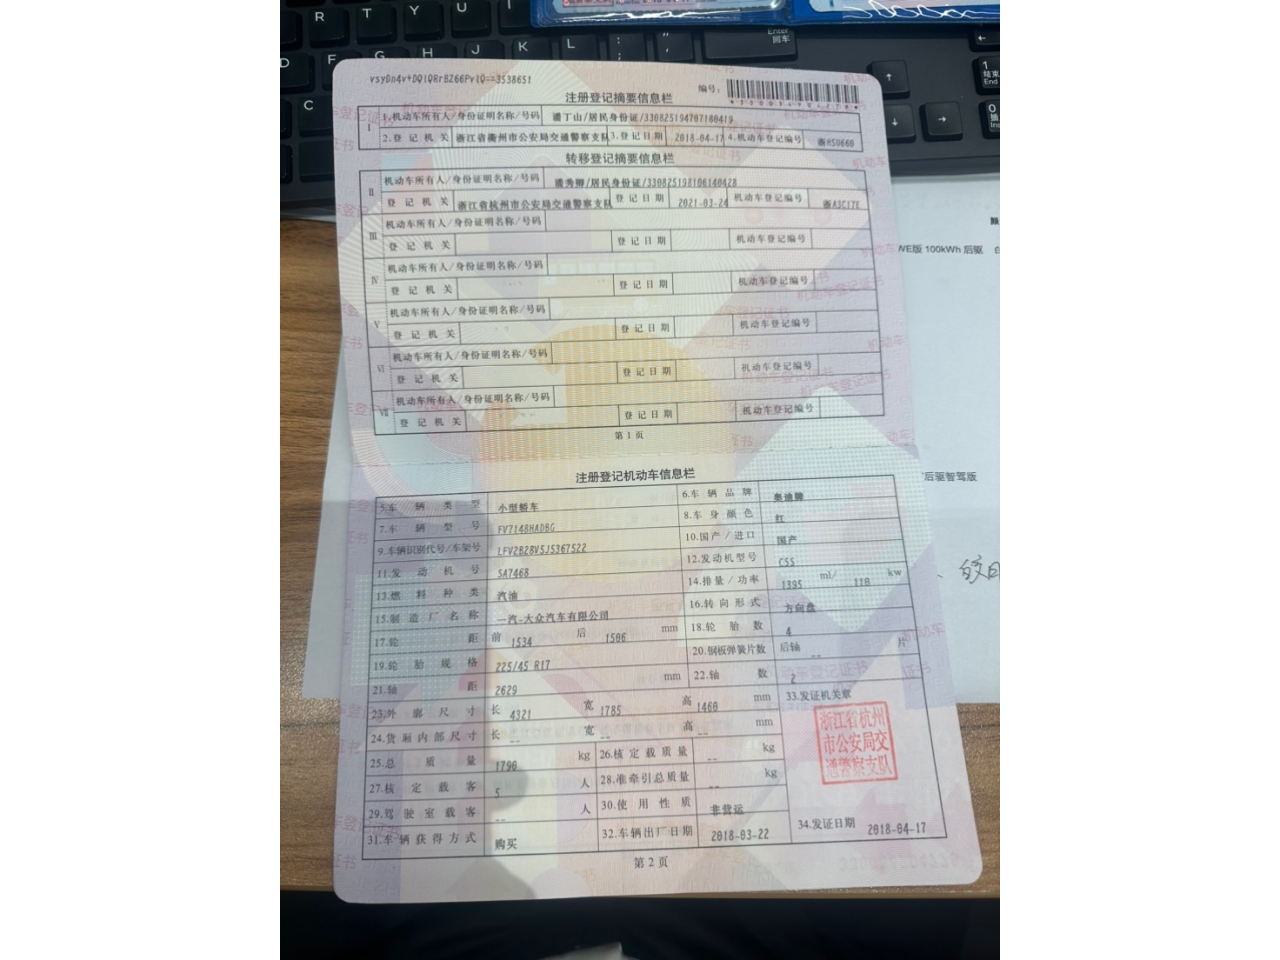 R T Y U I
D F G H J K L
Enter
回车
C
结束
End
Ins
vsyDn4v+DQlQRrBZ66PvlQ==3538651
编号:
注册登记摘要信息栏
I 1.机动车所有人/身份证明名称/号码 潘丁山/居民身份证/330825194707180419
2.登记机关 浙江省衢州市公安局交通警察支队 3.登记日期 2018-04-17 4.机动车登记编号
转移登记摘要信息栏
II 机动车所有人/身份证明名称/号码 潘秀卿/居民身份证/330825198106140428
登记机关 浙江省杭州市公安局交通警察支队 登记日期 2021-03-24 机动车登记编号
III 机动车所有人/身份证明名称/号码
登记机关 登记日期 机动车登记编号
IV 机动车所有人/身份证明名称/号码
登记机关 登记日期 机动车登记编号
V 机动车所有人/身份证明名称/号码
登记机关 登记日期 机动车登记编号
VI 机动车所有人/身份证明名称/号码
登记机关 登记日期 机动车登记编号
VII 机动车所有人/身份证明名称/号码
登记机关 登记日期 机动车登记编号
第1页
注册登记机动车信息栏
5.车辆类型 小型轿车 6.车辆品牌 奥迪牌
7.车辆型号 FV7148HADBG 8.车身颜色 红
9.车辆识别代号/车架号 LFV2B28V5J5367522 10.国产/进口 国产
11.发动机号 SA7468 12.发动机型号 CSS
13.燃料种类 汽油 14.排量/功率 1395 ml/ 110 kw
15.制造厂名称 一汽-大众汽车有限公司 16.转向形式 方向盘
17.轮距 前 1534 后 1506 mm 18.轮胎数 4
19.轮胎规格 225/45 R17 20.钢板弹簧片数 后轴 -- 片
21.轴距 2629 mm 22.轴数 2
23.外廓尺寸 长 4321 宽 1785 高 1460 mm 33.发证机关章
24.货厢内部尺寸 长 -- 宽 -- 高 -- mm
25.总质量 1790 kg 26.核定载质量 -- kg
27.核定载客 5 人 28.准牵引总质量 -- kg
29.驾驶室载客 -- 人 30.使用性质 非营运
31.车辆获得方式 购买 32.车辆出厂日期 2018-03-22 34.发证日期 2018-04-17
浙江省杭州
市公安局交
通警察支队
第2页
WE版 100kWh 后驱
后驱智驾版